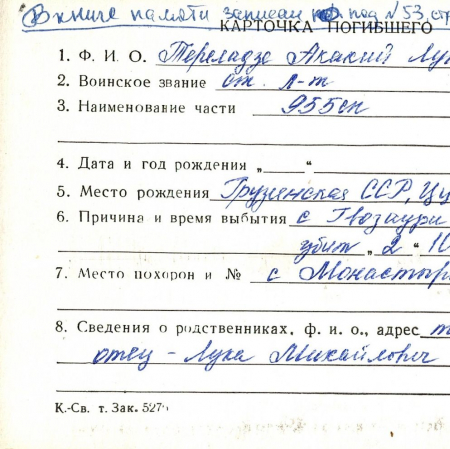 В книге памяти записан под № 53, стр
КАРТОЧКА ПОГИБШЕГО
1. Ф. И. О. Тереладзе Акакий Лук
2. Воинское звание ст. л-т
3. Наименование части 955 сп
4. Дата и год рождения „ “
5. Место рождения Грузинская ССР, Цу
6. Причина и время выбытия с Гвозаури
убит „2“ 10
7. Место похорон и № с Монастыр
8. Сведения о родственниках, ф. и о., адрес
отец - Лука Михайлович
К.-Св. т. Зак. 527